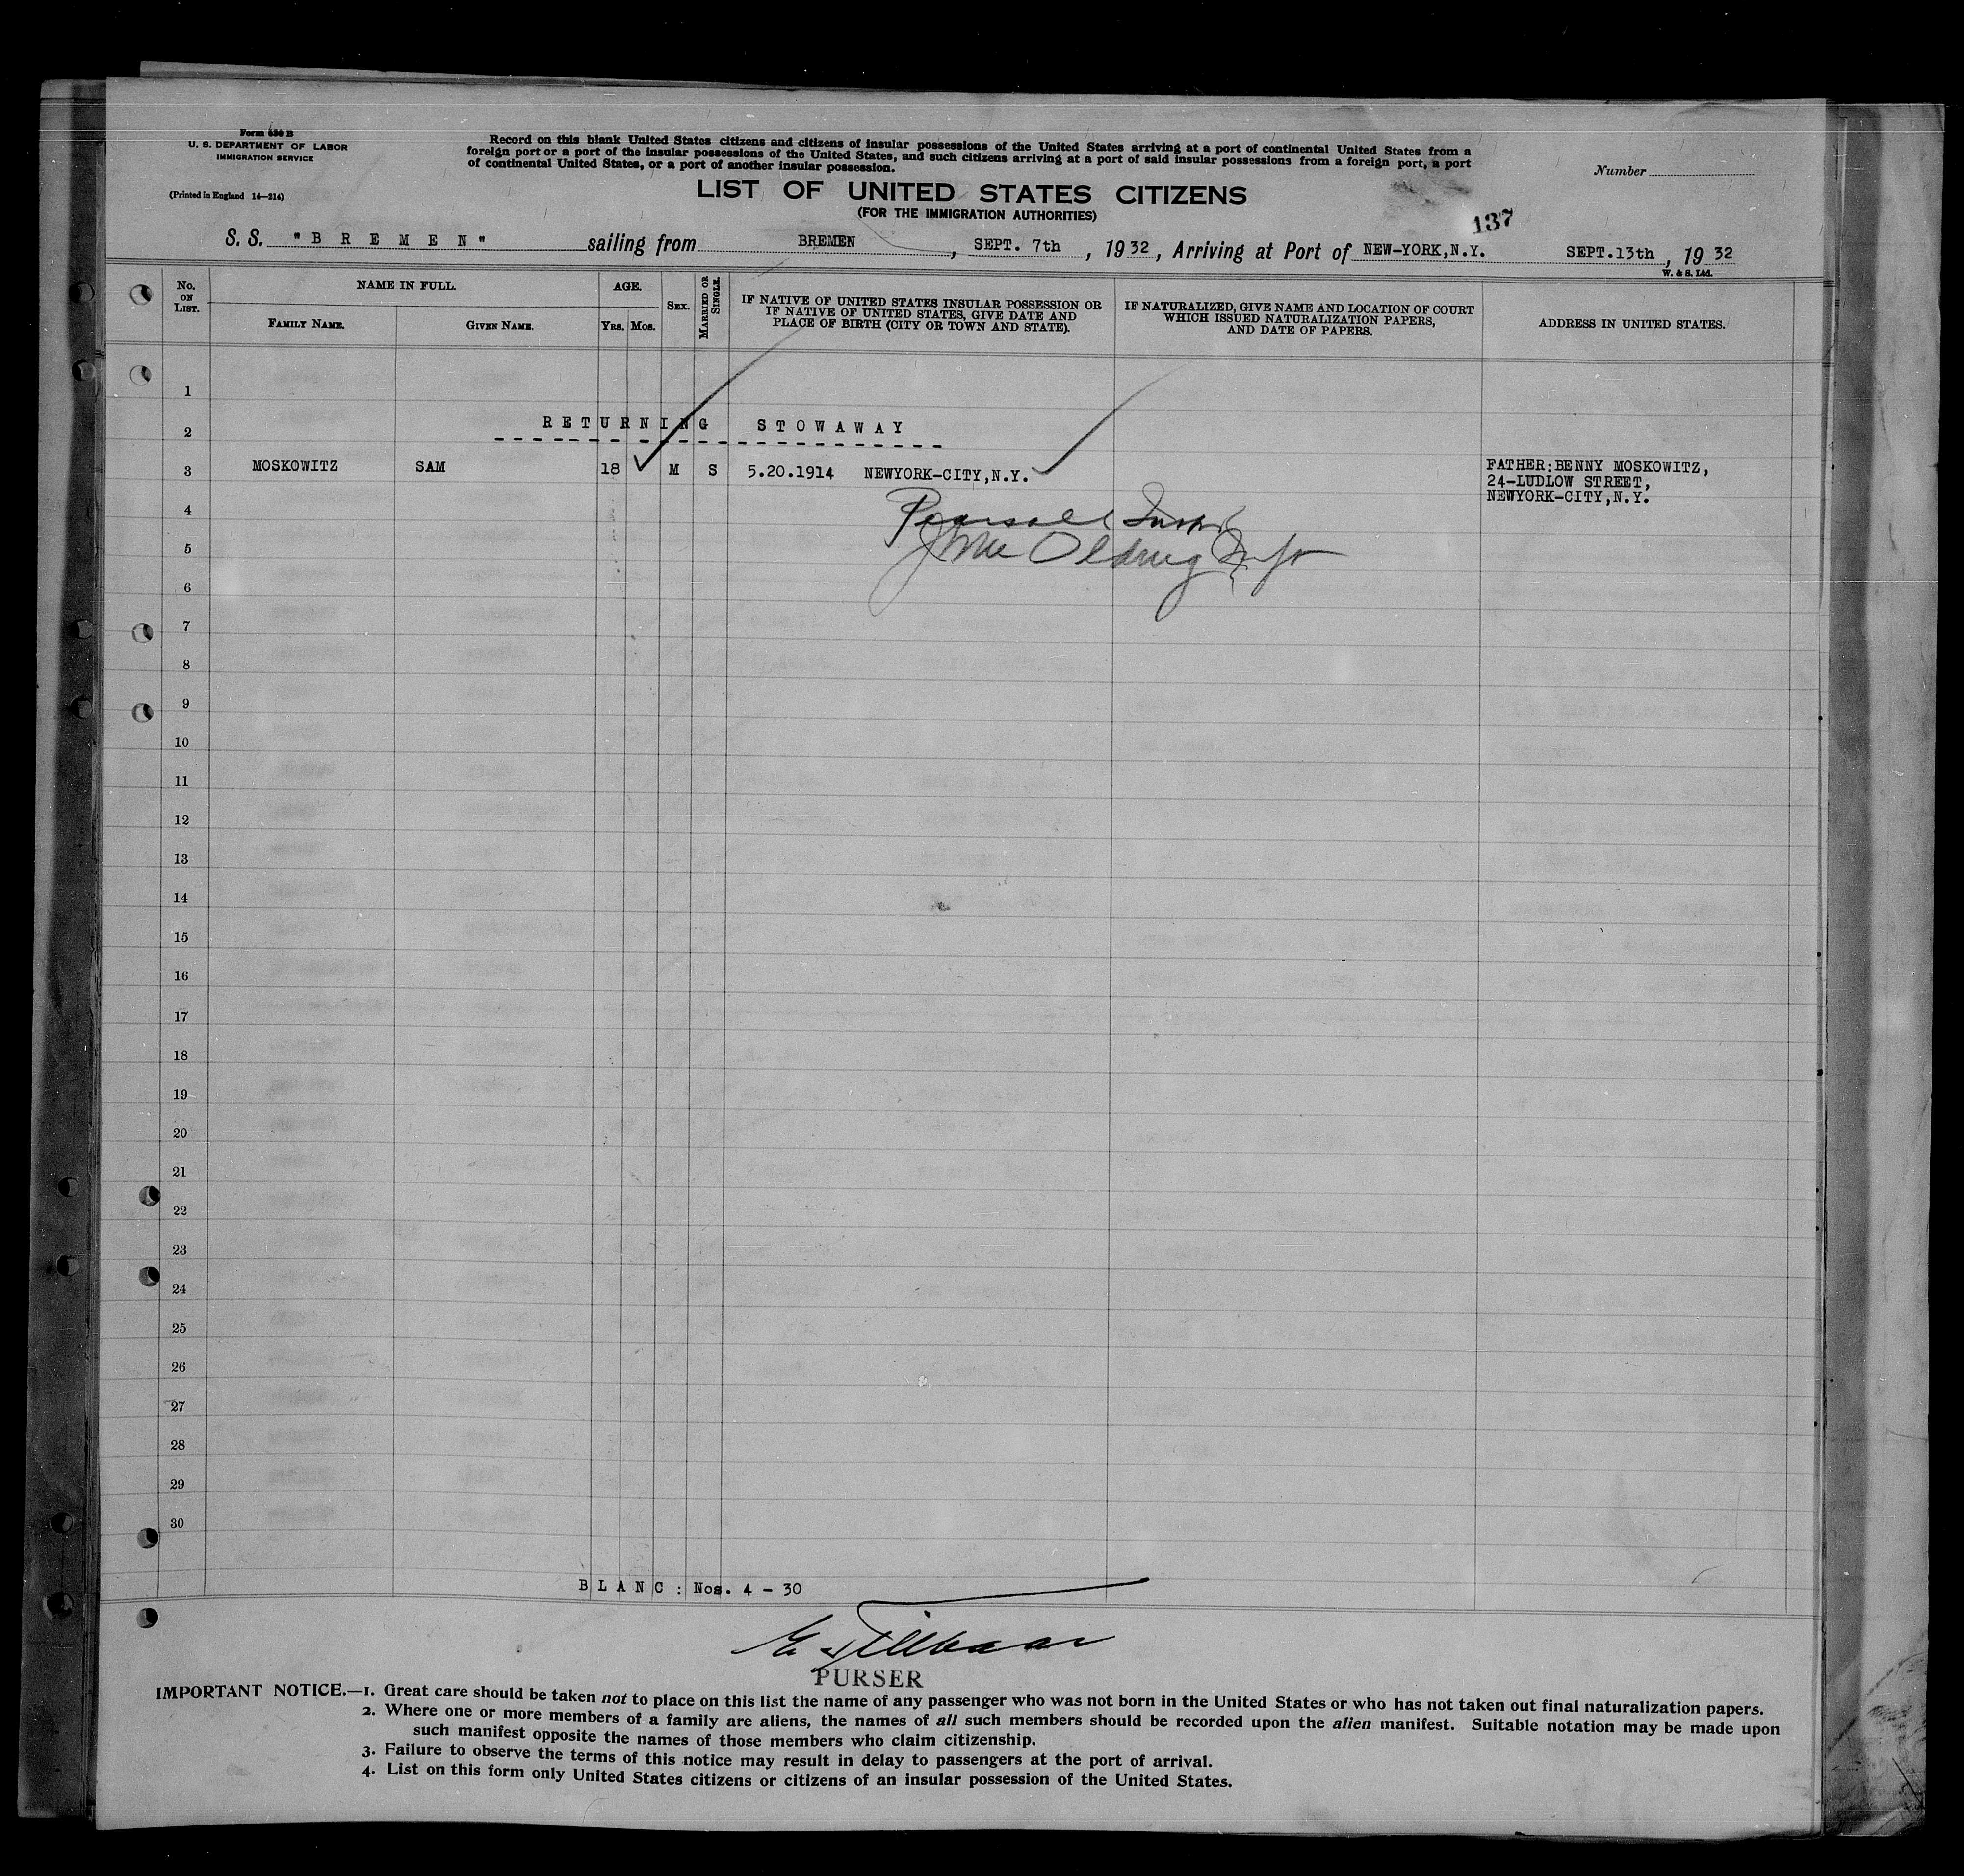 Form 630 B
U. S. DEPARTMENT OF LABOR
IMMIGRATION SERVICE
(Printed in England 14—214)
Record on this blank United States citizens and citizens of insular possessions of the United States arriving at a port of continental United States from a
foreign port or a port of the insular possessions of the United States, and such citizens arriving at a port of said insular possessions from a foreign port, a port
of continental United States, or a port of another insular possession.
Number
LIST OF UNITED STATES CITIZENS
(FOR THE IMMIGRATION AUTHORITIES)
137
S. S. "B R E M E N" sailing from BREMEN, SEPT. 7th, 1932, Arriving at Port of NEW-YORK,N.Y. SEPT.13th, 1932
W. & S. Ltd.
No. ON LIST. NAME IN FULL. AGE. SEX. MARRIED OR SINGLE. IF NATIVE OF UNITED STATES INSULAR POSSESSION OR IF NATIVE OF UNITED STATES, GIVE DATE AND PLACE OF BIRTH (CITY OR TOWN AND STATE). IF NATURALIZED, GIVE NAME AND LOCATION OF COURT WHICH ISSUED NATURALIZATION PAPERS, AND DATE OF PAPERS. ADDRESS IN UNITED STATES.
FAMILY NAME. GIVEN NAME. Yrs. Mos.
1
2 R E T U R N I N G S T O W A W A Y
3 MOSKOWITZ SAM 18 M S 5.20.1914 NEWYORK-CITY,N.Y. FATHER:BENNY MOSKOWITZ,
24-LUDLOW STREET,
NEWYORK-CITY,N.Y.
4 Pearsall
5
6
7
8
9
10
11
12
13
14
15
16
17
18
19
20
21
22
23
24
25
26
27
28
29
30
B L A N C : Nos. 4 - 30
PURSER
IMPORTANT NOTICE.—1. Great care should be taken not to place on this list the name of any passenger who was not born in the United States or who has not taken out final naturalization papers.
2. Where one or more members of a family are aliens, the names of all such members should be recorded upon the alien manifest. Suitable notation may be made upon
such manifest opposite the names of those members who claim citizenship.
3. Failure to observe the terms of this notice may result in delay to passengers at the port of arrival.
4. List on this form only United States citizens or citizens of an insular possession of the United States.